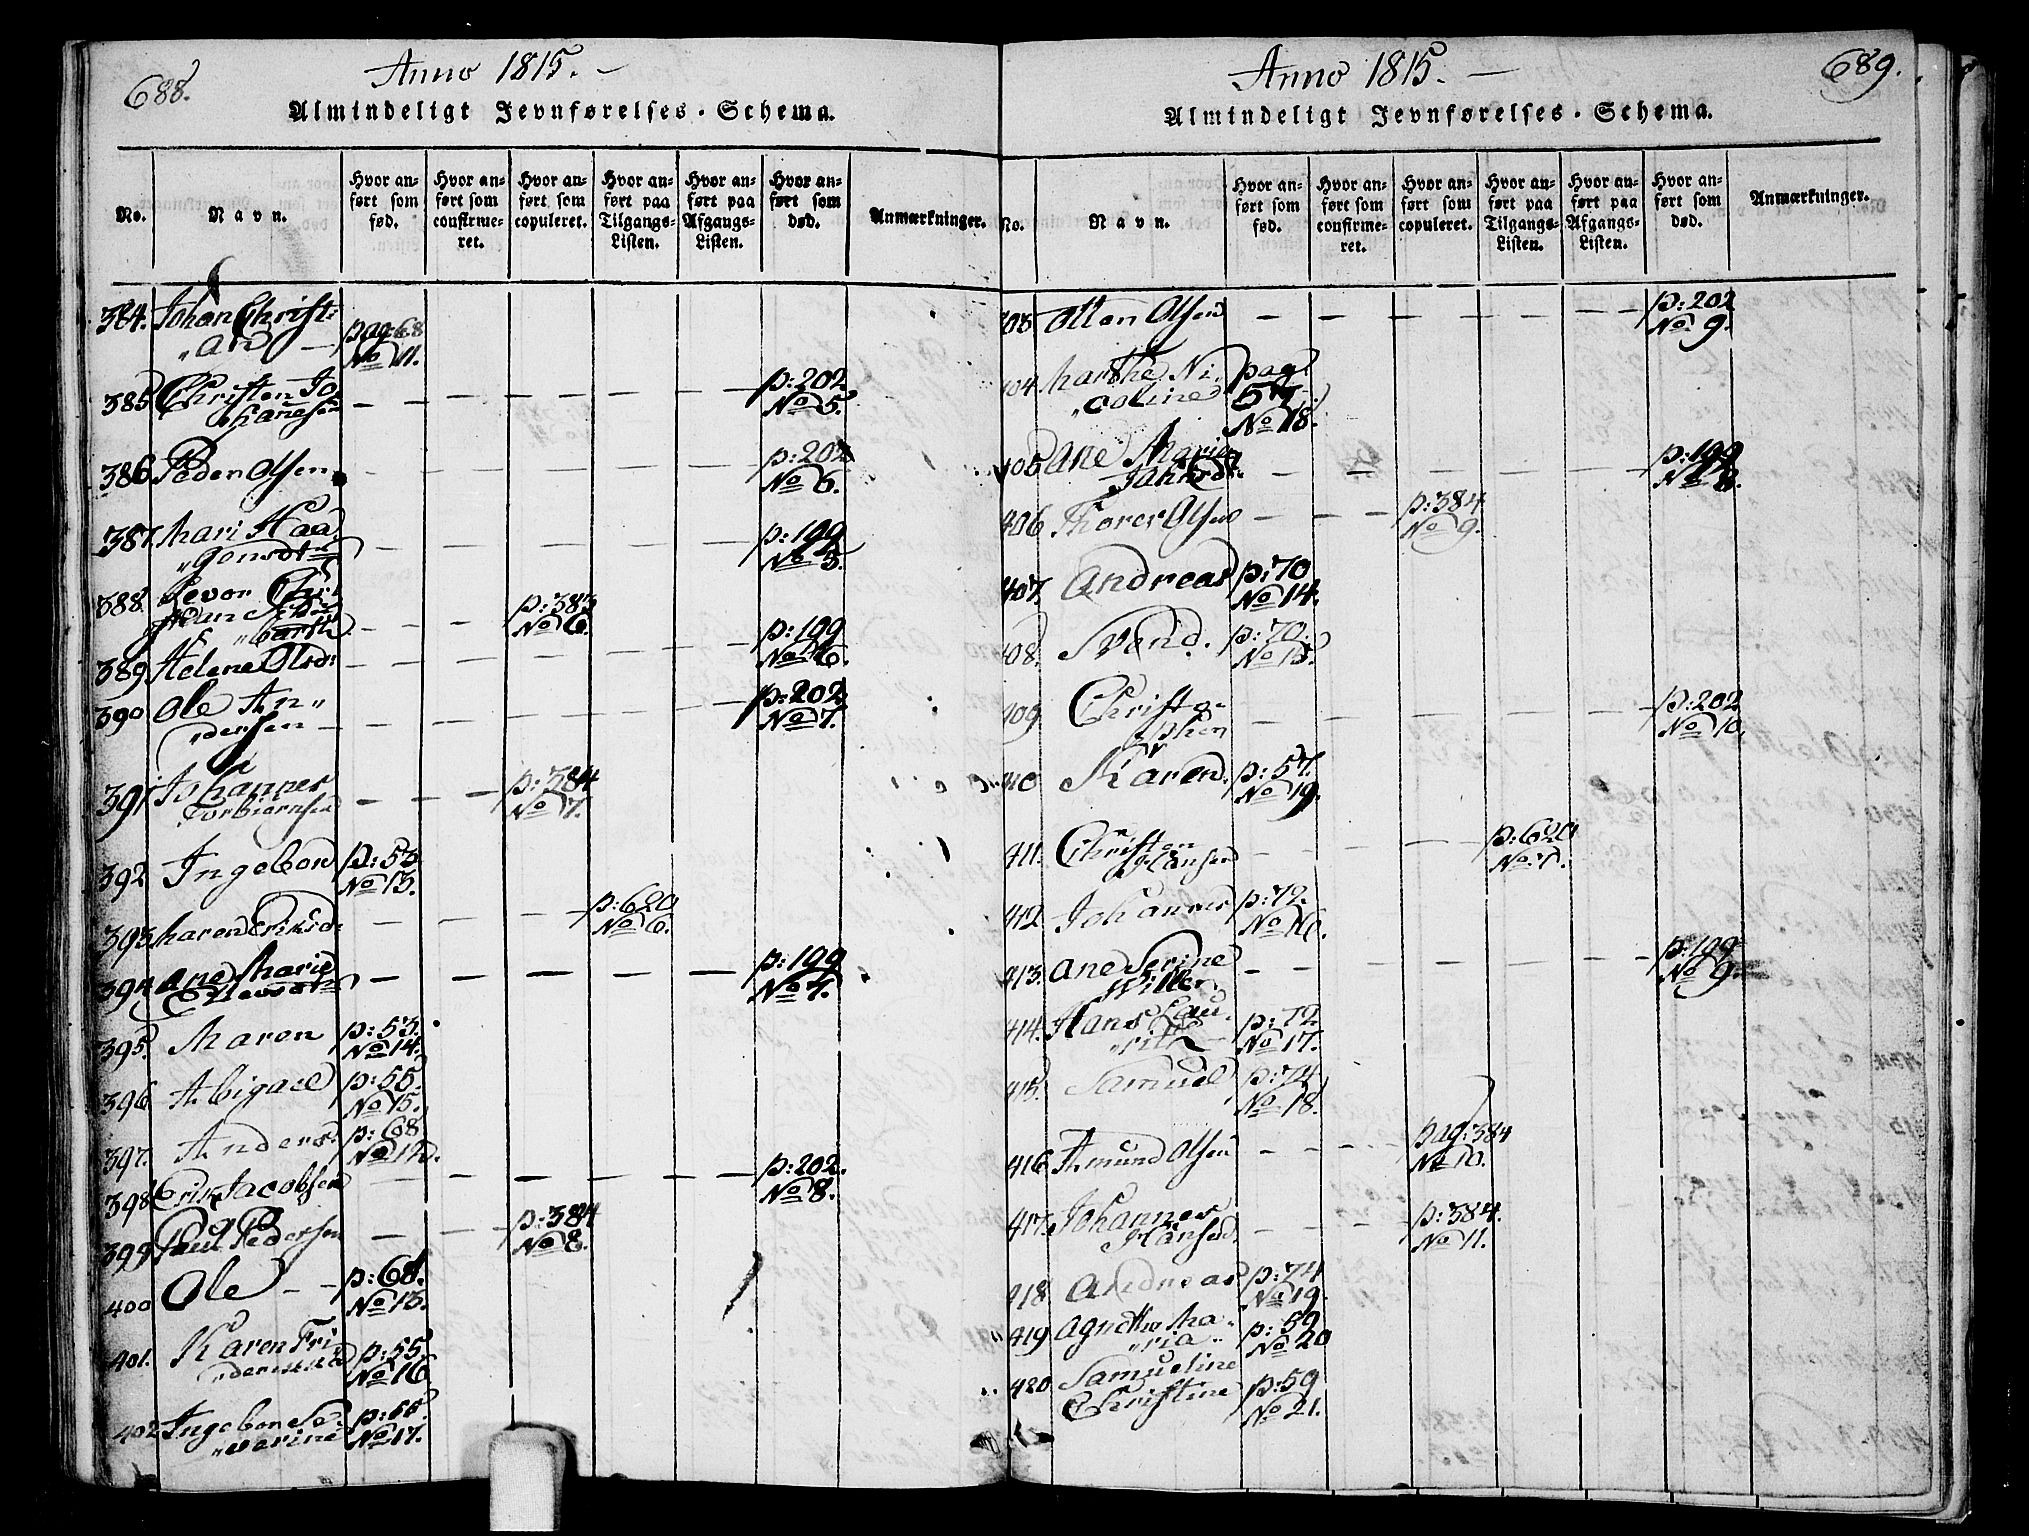 688.
Anno 1815. –
Almindeligt Jevnførelses-Schema.
No.
Navn.
Hvor an-
ført som
fød.
Hvor an-
ført som
confirme-
ret.
Hvor an-
ført som
copuleret.
Hvor an-
ført paa
Tilgangs-
Listen.
Hvor an-
ført paa
Afgangs-
Listen.
Hvor an-
ført som
død.
Anmærkninger.
384. Johan Christi-
"an – pag: 68
No 11.
385 Christen Jo
hansen p: 202
No 5.
386 Peder Olsen p: 202
No 6.
387. Mari Haa
"gensdtr p: 199
No 5.
388. Gevor Chri
stian
"barth p: 383
No 6.
389 Helene Olsdr: p: 199
No 6.
390 Ole An"
"dersen – p: 202
No 7.
391 Johannes
Torbiørnsen p: 384
No 7.
392 Ingebor p: 53
No 13.
393 Maren Eriksd: p: 620
No 6.
394 Ane Marie
p: 199
No 7.
395. Maren p: 53.
No 14.
396 Abigael p: 55.
No 15.
397. Anders p: 68
No 12.
398 Erik Jacobsen p: 202.
No 8.
399 Poul Pedersen p: 384
No 8.
400 Ole – p: 68.
No 13.
401. Karen Fri
"dericka p: 55.
No 16
402 Ingebor Se-
"verine p: 55.
No 17.
689.
Anno 1815. –
Almindeligt Jevnførelses-Schema.
No.
Navn.
Hvor an-
ført som
fød.
Hvor an-
ført som
confirme-
ret.
Hvor an-
ført som
copuleret.
Hvor an-
ført paa
Tilgangs-
Listen.
Hvor an-
ført paa
Afgangs-
Listen.
Hvor an-
ført som
død.
Anmærkninger.
Otten Olsen p: 202
No 9.
404. Marthe Ni-
"coline pag:
57.
No 18.
405 Ane Marie
p: 199
No 8.
406 Thorer Olsen p: 384
No 9.
407. Andreas p: 70
No 14.
408. Svend. p: 70.
No 15.
409. Christo-
phen p: 202
No 10.
410 Karen. p: 57.
No 19.
411. Christen
Hansen p: 620
No 7.
412 Johannes p: 72.
No 16.
413. Ane Serine
Willer p: 199
No 9.
414. Hans Lau-
"ritz p: 72
No 17.
415. Samuel p: 74
No 18.
416 Amund Olsen pag: 384
No 10.
417. Johannes
Hansen. p: 384.
No 11.
418 Andreas p: 74
No 19.
419 Agnethe Ma-
"ria" p: 59
No 20
420 Samueline
Christine p: 59
No 21.